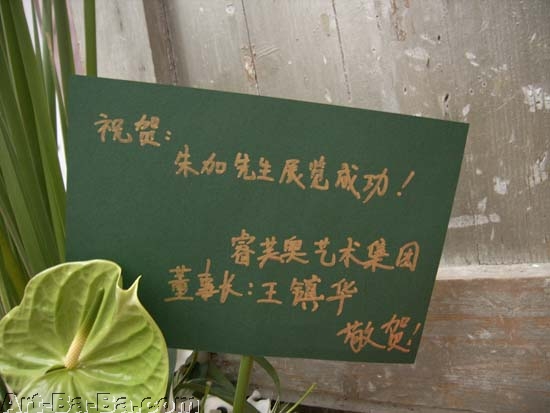 祝贺:
朱加先生展览成功!
睿芙奥艺术集团
董事长:王镇华
敬贺!
Art-Ba-Ba.Com